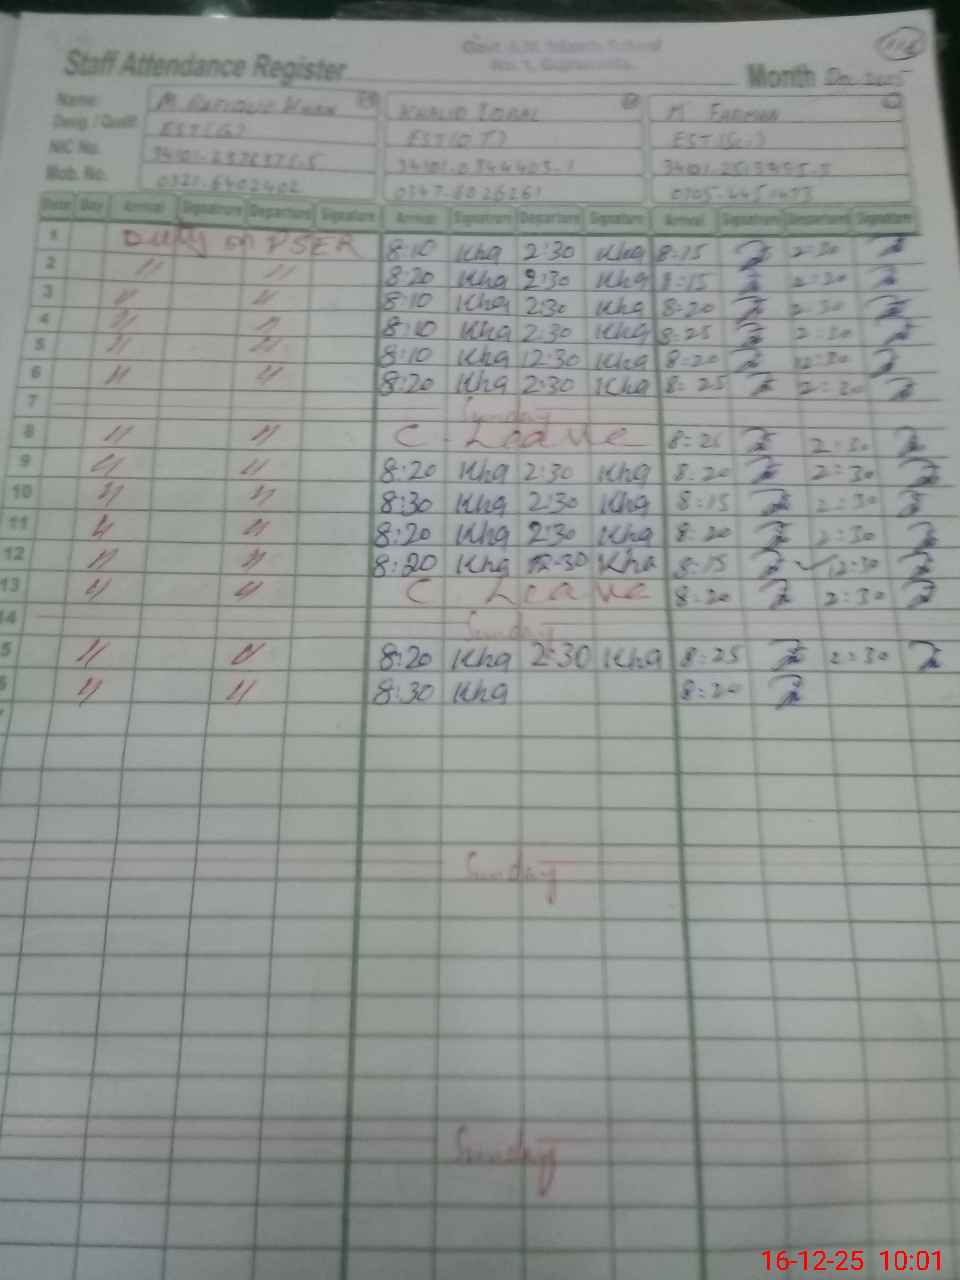 Staff Attendance Register
Month Dec 2025
Name: M. Rafique Khan Khalid Iqbal M Farman
Desig. / Qualif. EST(G) EST(OT)
NIC No.
Mob. No. 0321-6402402 0347-8026261
Date Day Arrival Signature Departure Signature Arrival Signature Departure Signature Arrival Signature Departure Signature
1 Duty on PSER 8:10 Kha 2:30 Kha 8:15 2:30
2 〃 〃 8:20 Kha 2:30 Kha 8:15 2:30
3 〃 〃 8:10 Kha 2:30 Kha 8:20 2:30
4 〃 〃 8:10 Kha 2:30 Kha 8:25 2:30
5 〃 〃 8:10 Kha 12:30 Kha 8:20 12:30
6 〃 〃 8:20 Kha 2:30 Kha 8:25 2:30
7 Sunday
8 〃 〃 C. Leave 2:30
9 〃 〃 8:20 Kha 2:30 Kha 8:20 2:30
10 〃 〃 8:30 Kha 2:30 Kha 8:15 2:30
11 〃 〃 8:20 Kha 2:30 Kha 8:20 2:30
12 〃 〃 8:20 Kha 12:30 Kha 8:15 12:30
13 〃 〃 C Leave 8:20 2:30
14 Sunday
5 〃 〃 8:20 Kha 2:30 Kha 8:25 2:30
〃 〃 8:30 Kha 8:20
Sunday
Sunday
16-12-25 10:01